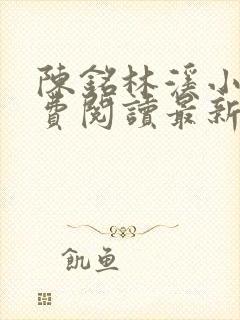 陳銘林溪小
費閱讀最新
飢魚